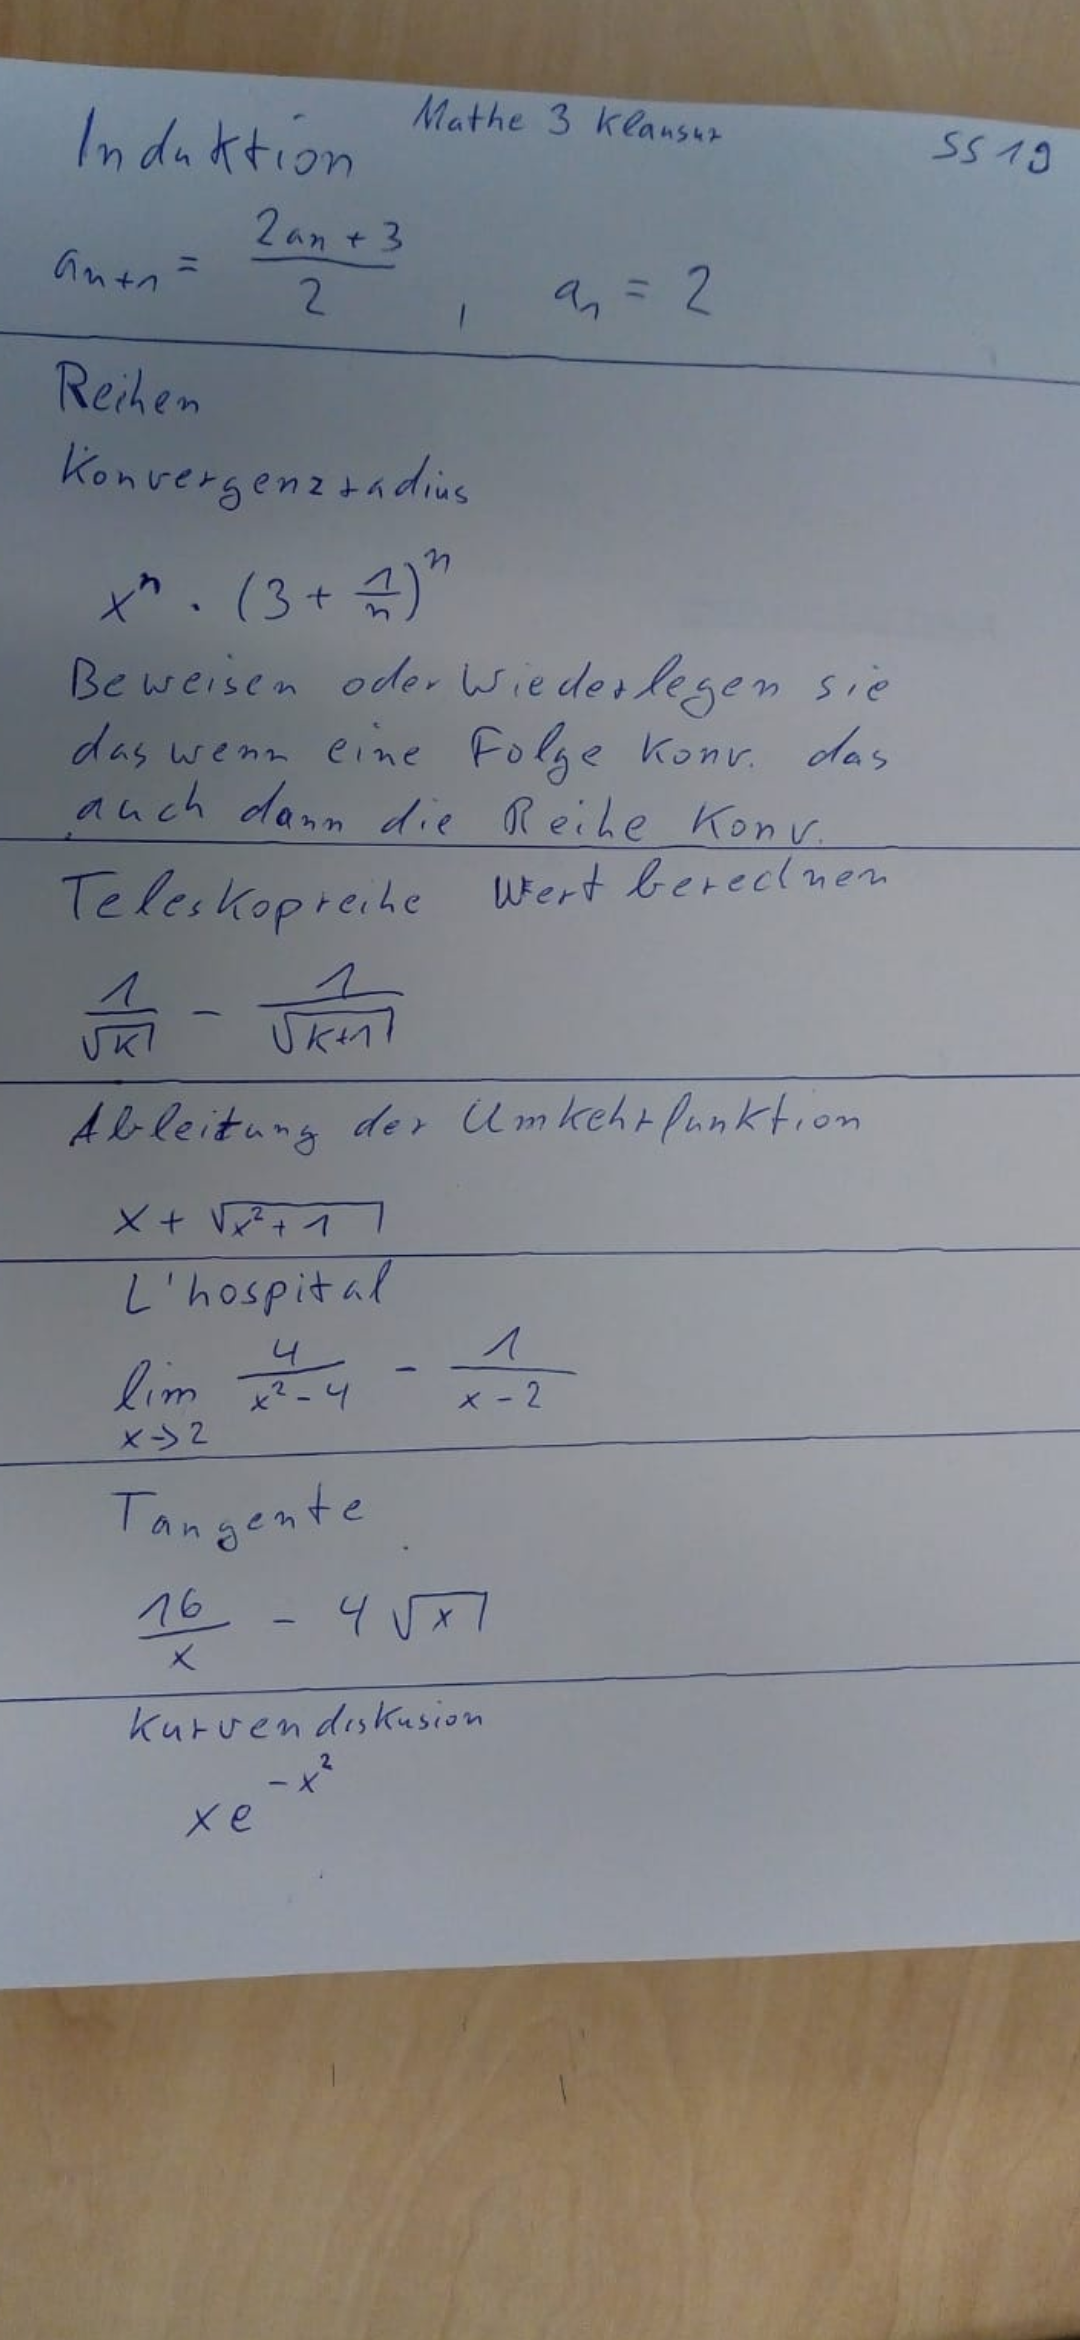 Mathe 3 Klausur
SS 19
Induktion
aₙ₊₁ = (2aₙ + 3)/2 , a₁ = 2
Reihen
Konvergenzradius
xⁿ · (3 + 1/n)ⁿ
Beweisen oder Wiederlegen sie
das wenn eine Folge Konv. das
auch dann die Reihe Konv.
Teleskopreihe Wert berechnen
1/√k - 1/√(k+1)
Ableitung der Umkehrfunktion
x + √(x² + 1)
L'hospital
lim x→2 4/(x² - 4) - 1/(x - 2)
Tangente
16/x - 4√x
Kurvendiskusion
xe^(-x²)